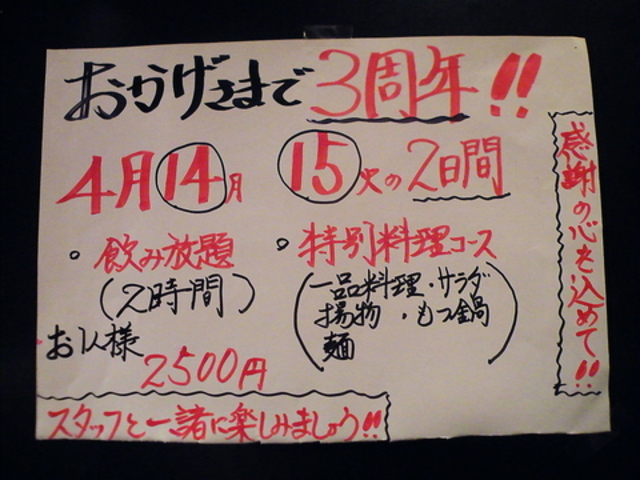 おかげさまで3周年!!
4月14月 15火の2日間
。飲み放題
(2時間)
お1人様
2500円
。特別料理コース
(一品料理・サラダ
揚物・もつ鍋
麺)
感謝の心を込めて!!
スタッフと一諸に楽しみましょう!!